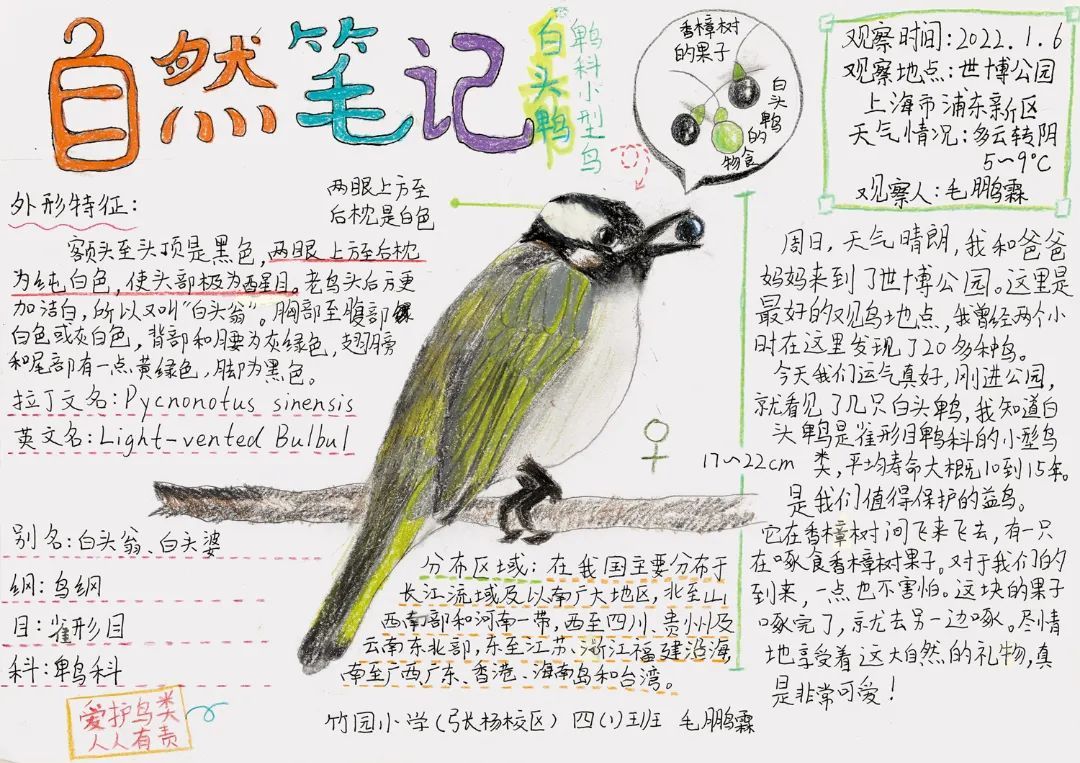 自然笔记
白头鹎
鹎科小型鸟
香樟树
的果子
白头鹎的
物食
观察时间:2022.1.6
观察地点:世博公园
上海市浦东新区
天气情况:多云转阴
5~9℃
观察人:毛鹏霖
外形特征:
额头至头顶是黑色,两眼上方至后枕
为纯白色,使头部极为醒目。老鸟头后方更
加洁白,所以又叫“白头翁”。胸部至腹部
白色或灰白色,背部和腰为灰绿色,翅膀
和尾部有一点黄绿色,脚为黑色。
拉丁文名:Pycnonotus sinensis
英文名:Light-vented Bulbul
两眼上方至
后枕是白色
别名:白头翁、白头婆
纲:鸟纲
目:雀形目
科:鹎科
爱护鸟类
人人有责
♀
17~22cm
分布区域:在我国主要分布于
长江流域及以南广大地区,北至山
西南部和河南一带,西至四川、贵州及
云南东北部,东至江苏、浙江福建沿海,
南至广西广东、香港、海南岛和台湾。
周日,天气晴朗,我和爸爸
妈妈来到了世博公园。这里是
最好的观鸟地点,我曾经两个小
时在这里发现了20多种鸟。
今天我们运气真好,刚进公园,
就看见了几只白头鹎,我知道白
头鹎是雀形目鹎科的小型鸟
类,平均寿命大概10到15年。
是我们值得保护的益鸟。
它在香樟树间飞来飞去,有一只
在啄食香樟树果子。对于我们的
到来,一点也不害怕。这块的果子
啄完了,就去另一边啄。尽情
地享受着这大自然的礼物,真
是非常可爱!
竹园小学(张杨校区) 四(1)班 毛鹏霖